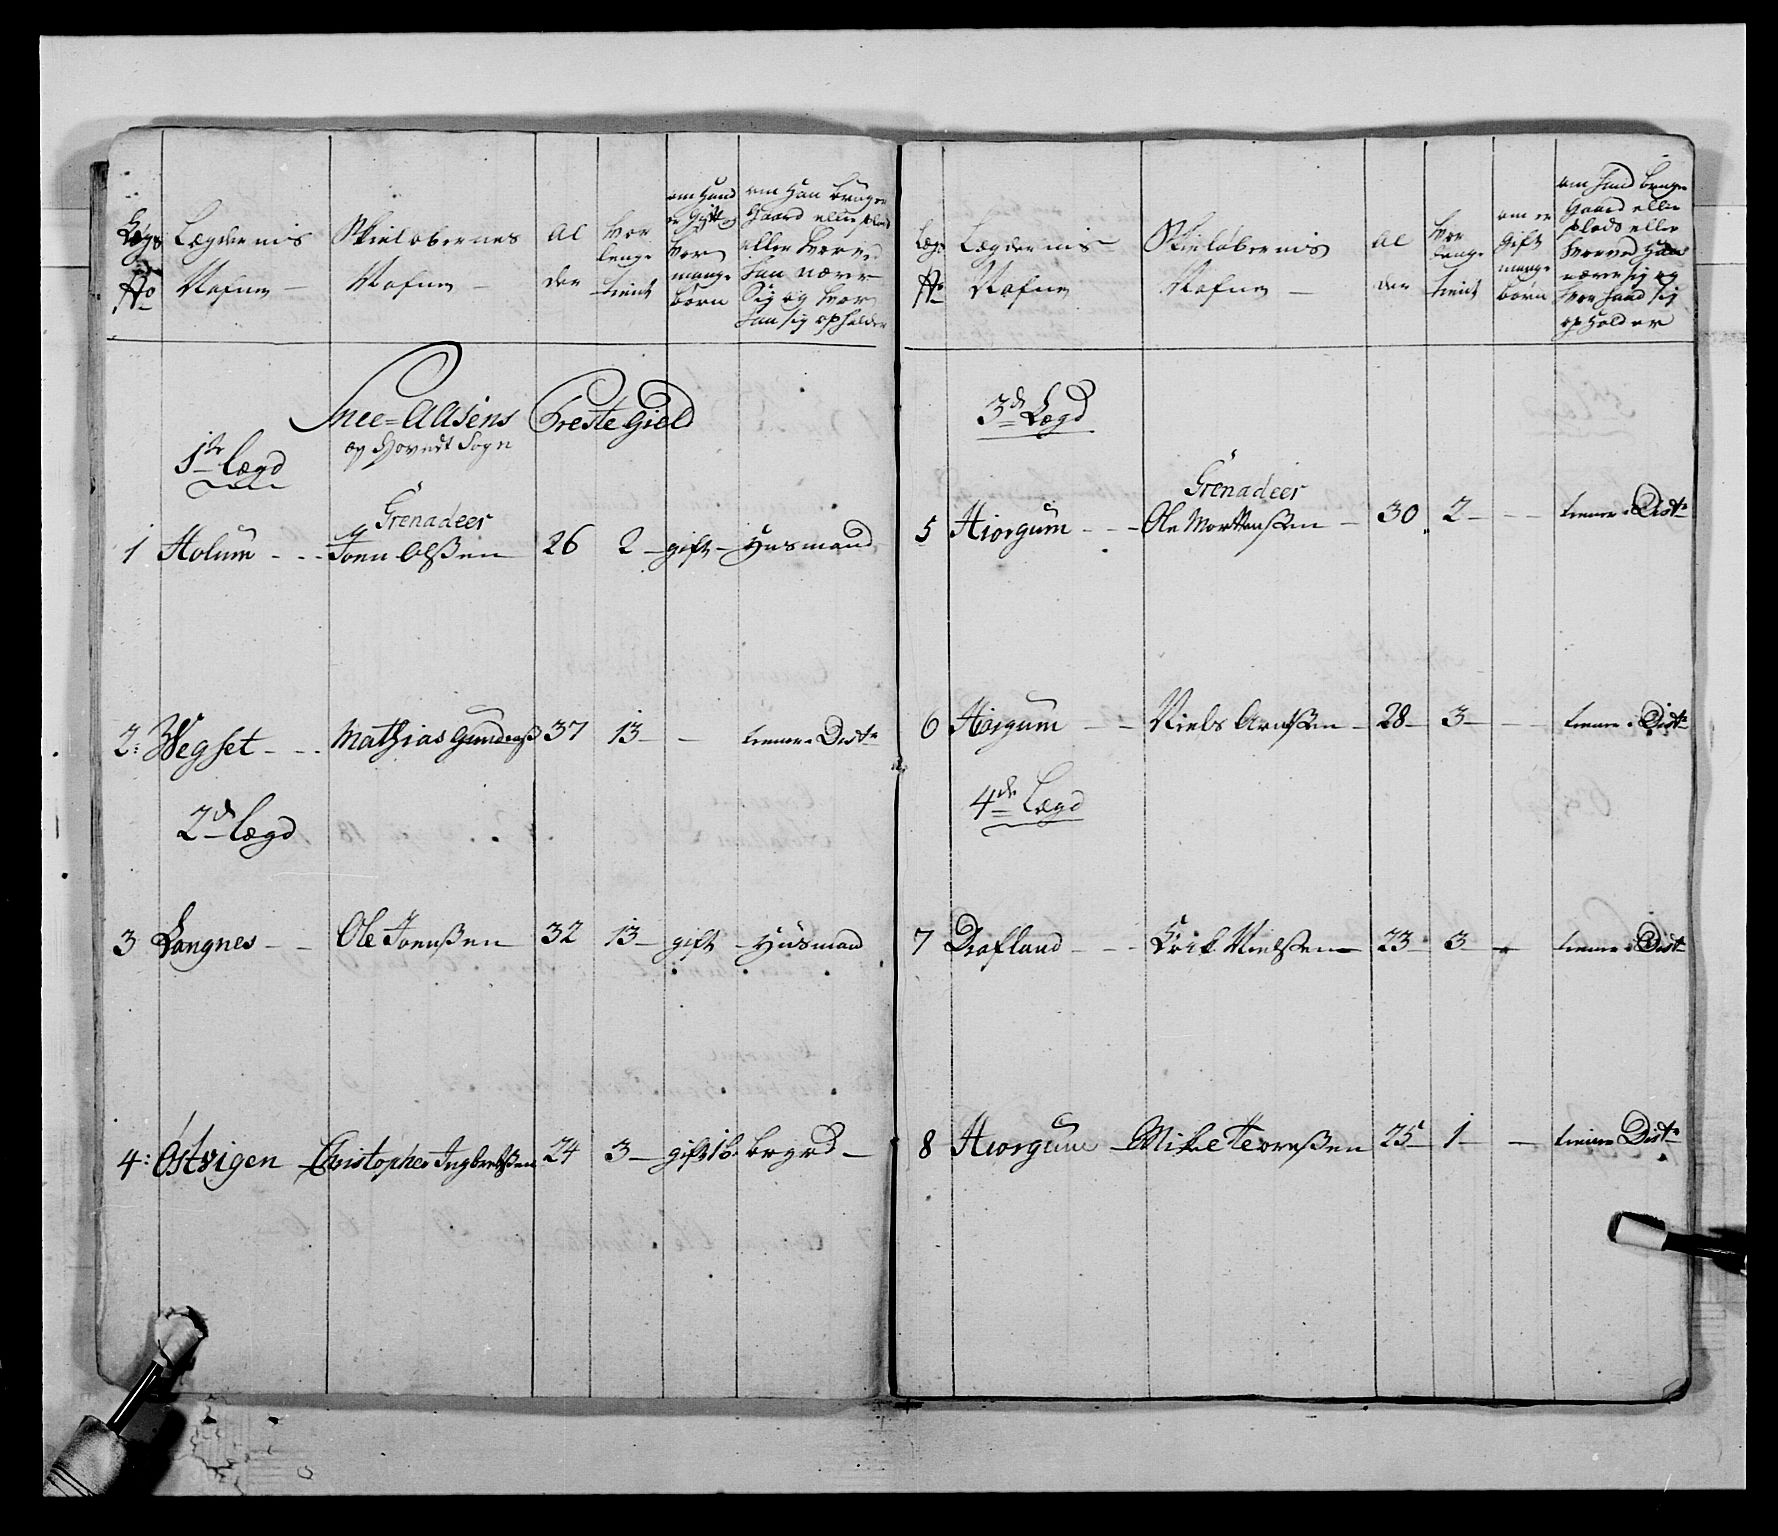 Lægs No
Lægdernis Nafne
Skieløbernes Nafne
Al der
Hvor lenge tient
om Hand er Gift og Hvor mange børn
om Han Bruger Gaard eller plads eller Hvorved Han nærer Sig og hvor han sig opholder
Snee=Aasens Preste Gield
og Hoveds Sogn
1te Lægd
Grenadeer
1 Holum - - - Joen Olßen 26 2 - gift - Husmand
2: Wegset - - - Mathias Gundersß 37 13 - - tiener i Dist.
2d Lægd
3 Langnes - - Ole Joenßen 32 13 - gift - Husmand
4: Østvigen - Christopher Ingbretßen 24 3 - gift 1 b.
Lægs No
Lægdernis Nafne
Skieløbernis Nafne
Al der
Hvor lenge tient
om er Gift mange børn
om Hand bruger Gaard eller plads eller Hvorved Han nære sig og Hvor Hand sig opholder
3d Lægd
Grenadeer
5 Hiorgum - - - Ole Mortenßen - 30 2 - - - tiener i Dist.
6 Hiorgum - - Niels Arntßen - 28 - 3 - - - tiener i Dist.
4de Lægd
7 Dafland - - - Erik Nielßen - 23 - 3 - - tiener i Dist.
8 Hiorgum - Mikel Toreßen 25 - 1 - - tiener Dist.